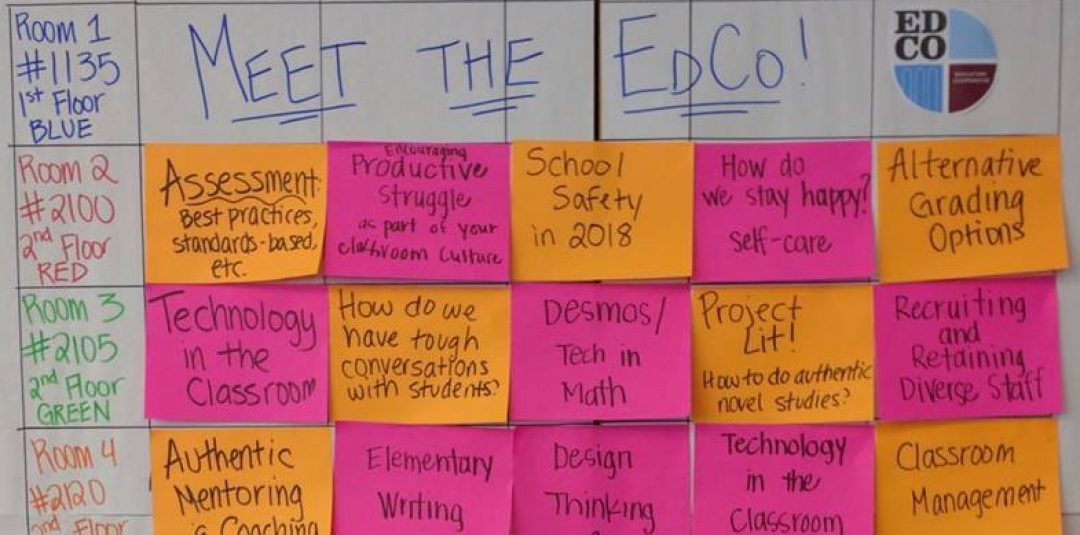 Room 1
#1135
1st Floor
BLUE
MEET THE EDCO!
ED
CO
Room 2
#2100
2nd Floor
RED
Assessment:
Best practices,
standards-based,
etc.
Encouraging
Productive
Struggle
as part of your
classroom culture
School
Safety
in 2018
How do
we stay happy?
Self-care
Alternative
Grading
Options
Room 3
#2105
2nd Floor
GREEN
Technology
in the
Classroom
How do we
have tough
conversations
with students?
Desmos/
Tech in
Math
Project
Lit!
How to do authentic
novel studies?
Recruiting
and
Retaining
Diverse Staff
Room 4
#2120
2nd Floor
Authentic
Mentoring
Coaching
Elementary
Writing
Design
Thinking
Technology
in the
Classroom
Classroom
Management